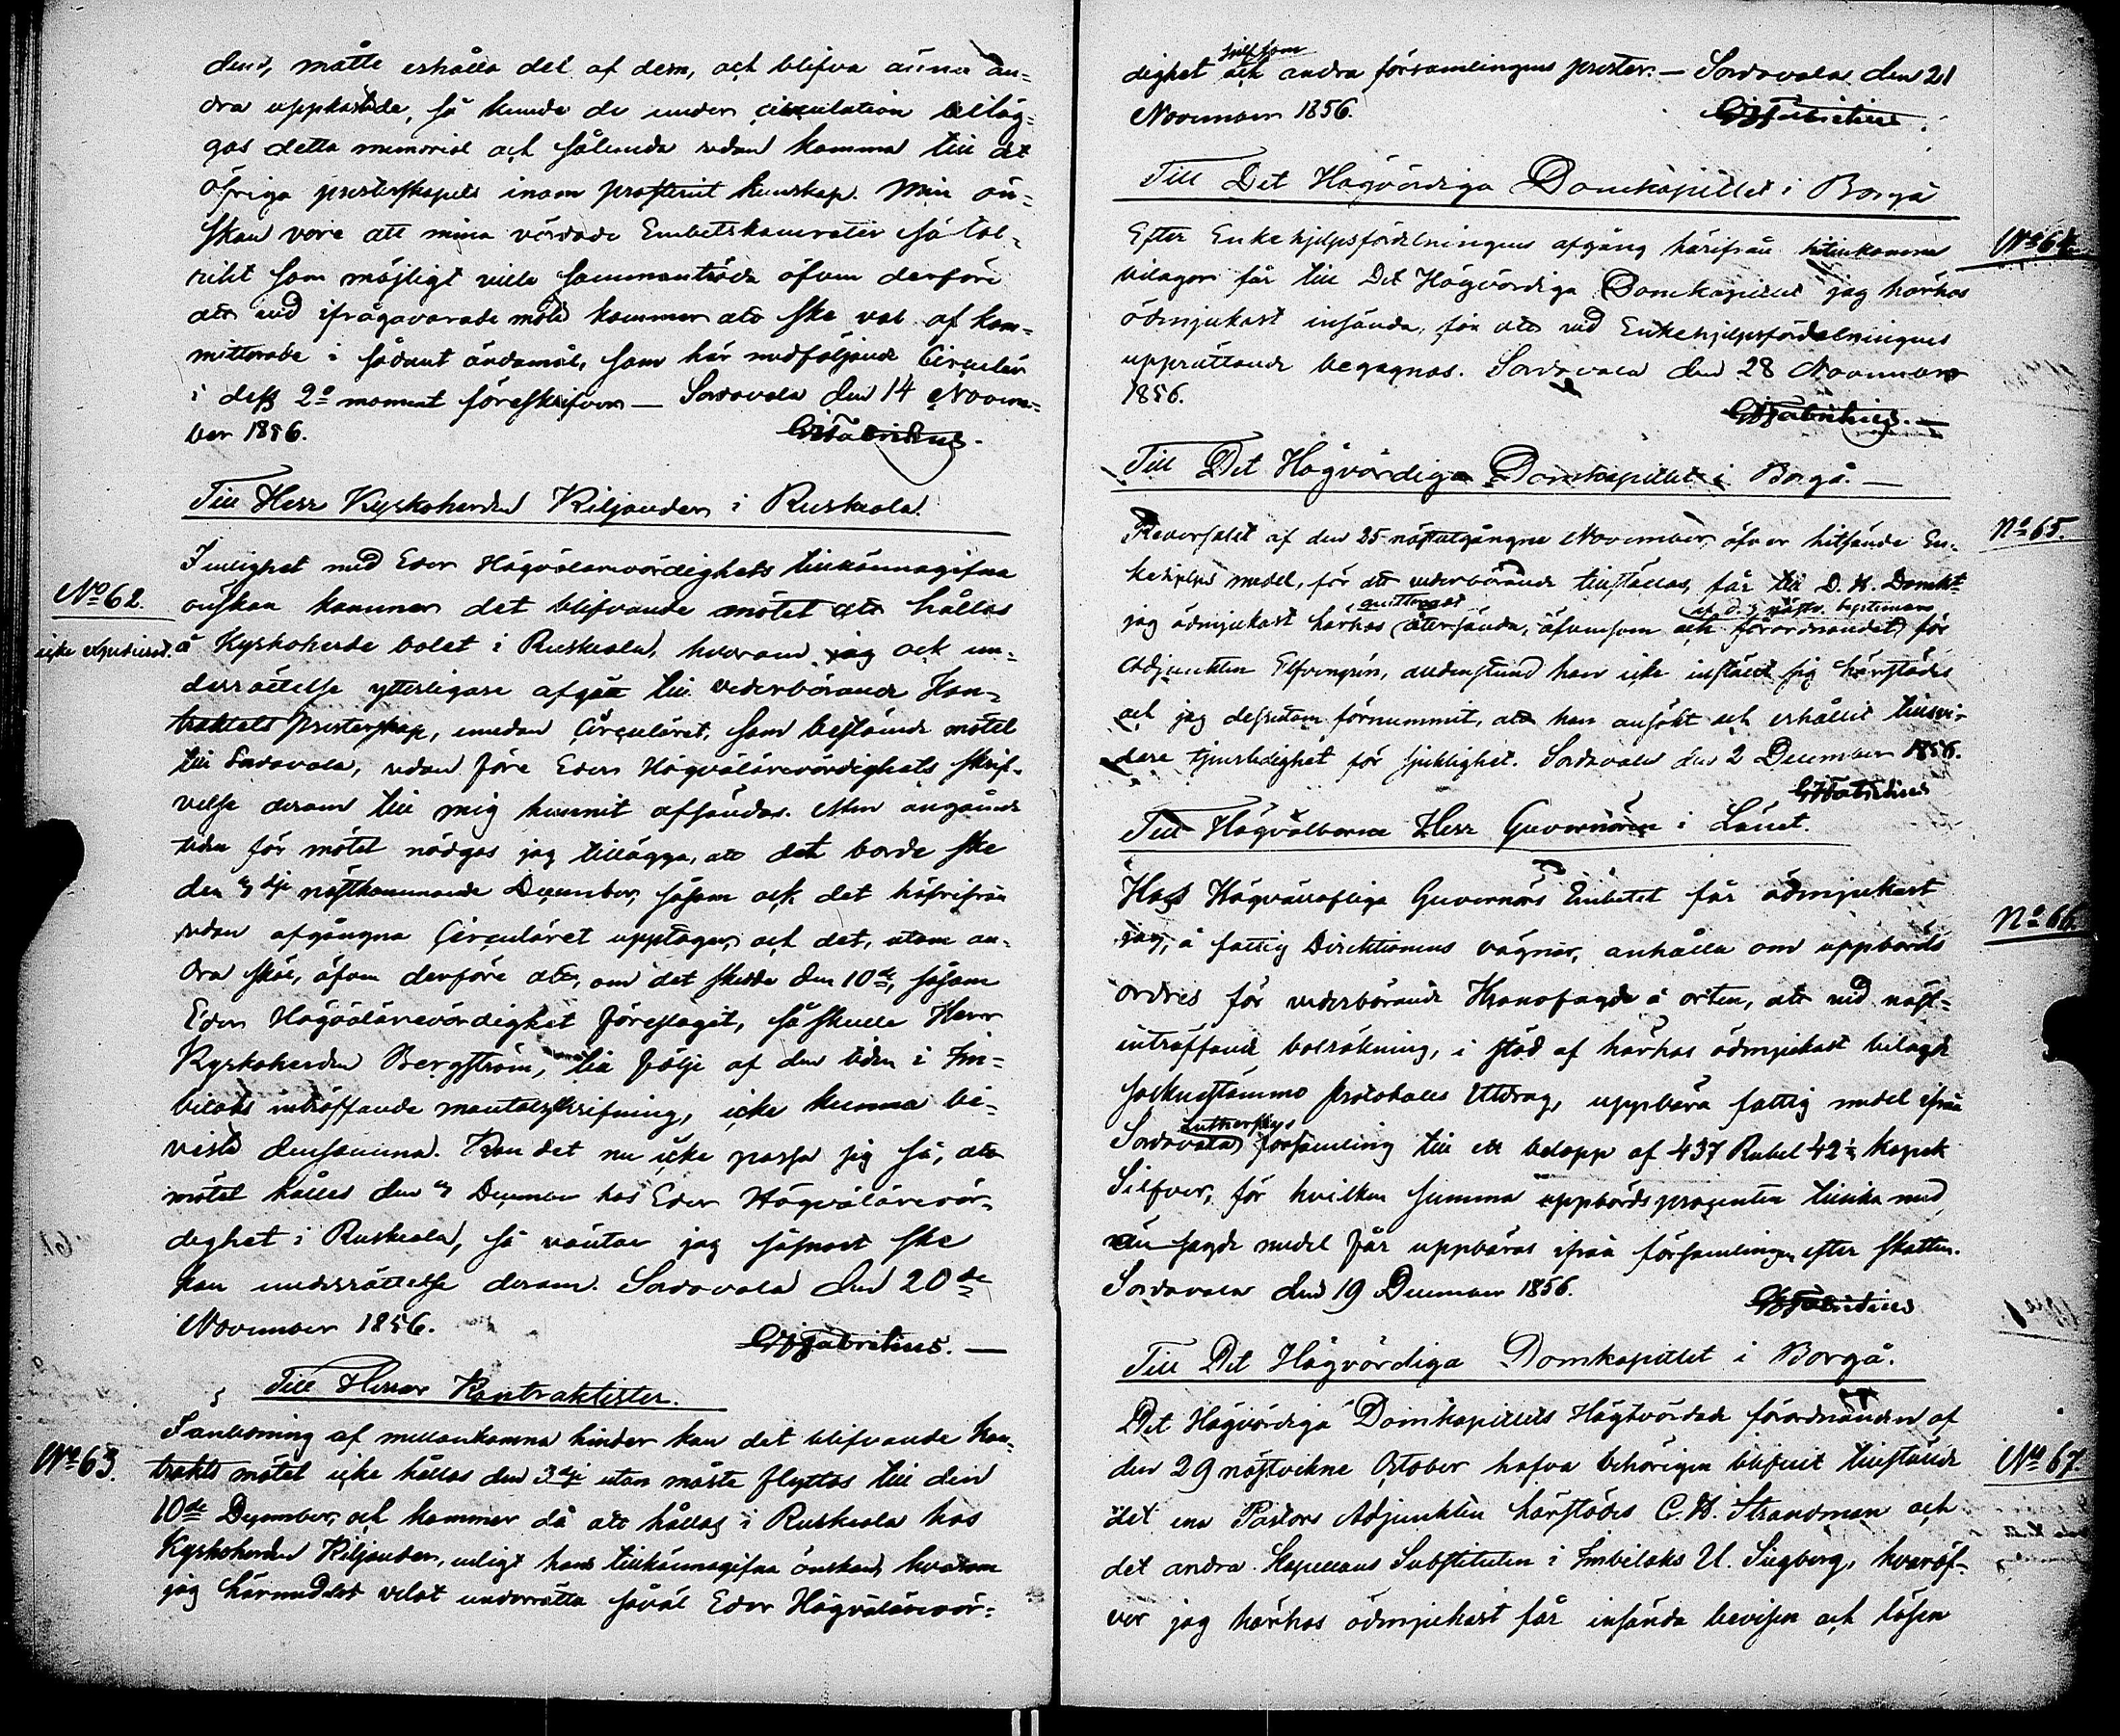 dens, måtte erhålla del af dem, och blifva ännu an-
dra uppkastade, så kunde de under circulation bilag-
gas detta memorial och sålunda sedan komma till det
öfriga presterskapets inom prosteriet kunskap. Min ön-
skan vore att mina vördade Embetskamrater så tal-
rikt som möjligt ville sammanträda äfven derföre
att vid ifrågavarade möte kommer att ske val af kom-
mitterade i sådant ändamål, som här medföljande Circulär
i dess 2o moment föreskrifver — Sordavala den 14 Novem-
ber 1856. GWFabritius.
Till Herr Kyrkoherden Kiljander i Ruskeala.
No 62.
icke expedierad.
I enlighet med Eder Högvälärevördighets tillkännagifna
önskan kommer det blifvande mötet att hållas
å Kyrkoherde bolet i Ruskeala, hvarom jag ock un-
derrättelse ytterligare afgår till vederbörande Kon-
trakts Presterskap, emedan Circuläret, som bestämde mötet
till Sordavala, redan före Eders Högvälärevördighets skrif-
velse derom till mig hunnit afsändas. Men angående
tiden för mötet nödgas jag tillägga, att det borde ske
den 3dje nästkommande December, såsom ock det härifrån
redan afgångna Circuläret upptager, och det, utom an-
dra skäl, äfven derföre att, om det skedde den 10de, såsom
Eder Högvälärevördighet föreslagit, så skulle Herr
Kyrkoherden Bergström, till följe af den tiden i Im-
bilaks inträffande mantalsskrifning, icke kunna bi-
vista densamma. Kan det nu icke passa sig så, att
mötet hålles den 3 December hos Eder Högvälärevör-
dighet i Ruskeala, så väntar jag såsnart ske
kan underrättelse derom. Sordavala den 20de
November 1856.
GWFabritius. —
Till Herrar Kontraktister.
No 63.
I anledning af mellankomna hinder kan det blifvande Kon-
trakts mötet icke hållas den 3dje utan måste flyttas till den
10de December, och kommer då att hållas i Ruskeala hos
Kyrkoherden Kiljander, enligt hans tillkännagifna önskan, hvarom
jag härmedelst velat underrätta såväl Eder Högvälärevör-
dighet såsom och andra församlingens prester. — Sordavala den 21
November 1856. GWFabritius.
Till Det Högvördiga Domkapitlet i Borgå
No 64.
Efter Enkehjelpsfördelningens afgång härifrån hitinkomna
bilagor får till Det Högvördiga Domkapitlet jag härhos
ödmjukast insända, för att vid Enkehjelpsfördelningens
upprättande begagnas. Sordavala den 28 November
1856.
GWFabritius. —
Till Det Högvördiga Domkapitlet i Borgå. —
No 65.
Reversalet af den 25 nästutgångne November öfver hitsände En-
kehjelps medel, för att vederbörande tillställas, får till D. H. Domkt
jag ödmjukast härhos quitteradt återsända, äfvensom och förordnandet för
af d. 5 nästv.
Adjunkten Elfvengren, alldenstund han icke inställt sig härstädes
och jag dessutom förnummit, att han ansökt och erhållit tillsvi-
dare tjenstledighet för sjuklighet. Sordavala den 2 December 1856.
GWFabritius
Till Högvälborne Herr Guvernören i Länet.
No 66.
Hos Högvällofliga Guvernörs Embetet får ödmjukast
jag, å fattig Direktionens vägnar, anhålla om uppbörds
ordres för vederbörande Kronofogde å orten, att vid näst-
inträffande bolräkning, i stöd af härhos ödmjukast bilagde
sockenstämmo Protokolls Utdrag, uppbära fattig medel ifrån
Sordavala Lutherskes församling till ett belopp af 437 Rubel 42½ kopek
Silfver, för hvilken summa uppbördsprocenten tillika med
nu sagde medel får uppbäras ifrån församlingen efter skatten.
Sordavala den 19 December 1856. GWFabritius
Till Det Högvördiga Domkapitlet i Borgå.
No 67.
Det Högvördiga Domkapitlets Högtvördade förordnanden af
den 29 nästvekne October hafva behörigen blifvit tillstälde
det ena Pastors Adjunkten härstädes C. H. Strandman och
det andra Kapellans Substituten i Imbilaks U. Siegberg, hvaröf-
ver jag härhos ödmjukast får insända bevisen och lösen